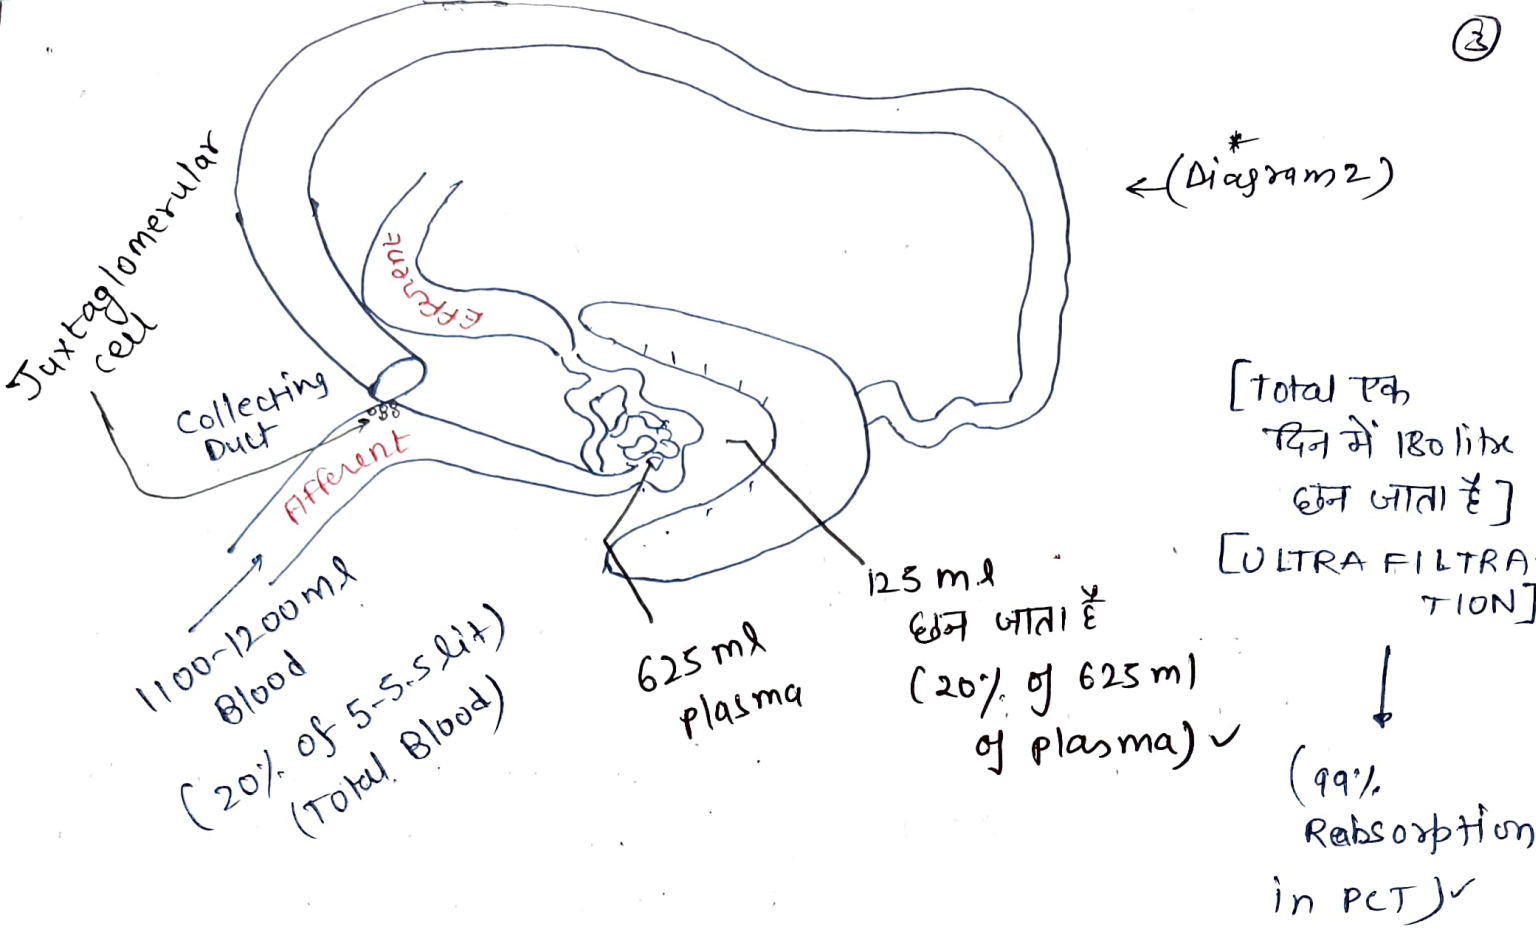 3
←(Diagram 2)
*
Juxtaglomerular
cell
Efferent
Collecting
Duct
Afferent
1100-1200 ml
Blood
(20% of 5-5.5 lit)
(Total Blood)
625 ml
plasma
125 ml
छन जाता है
(20% of 625 ml
of plasma) ✓
[Total एक
दिन में 180 litre
छन जाता है]
[ULTRA FILTRA-
TION]
(99%
Reabsorption
in PCT) ✓